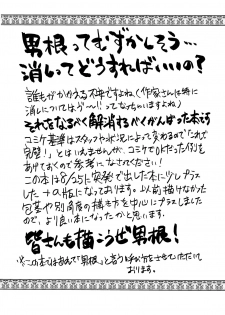 男根ってむずかしそう…
消しってどうすればいいの?
誰もがかかえる不安ですよね(作家さんは特に
消しについてはう〜!!ってなっちゃいますよね)
それをなるべく解消するべくがんばった本です
コミケ基準はスタッフや状況によって変わるので「これで
完璧!」とはいえませんが、コミケでOKだった例を
あげておくので参考になさってください!
この本は8/25に突発で出した本に少しプラス
した+α版になっております。以前描けなかった
包茎や別角度の描き方を中心にプラスしました
ので、より良い本になったかと思います。
皆さんも描こうぜ男根!
※この本ではあえて「男根」と言う呼び方をさせていただいて
おります。